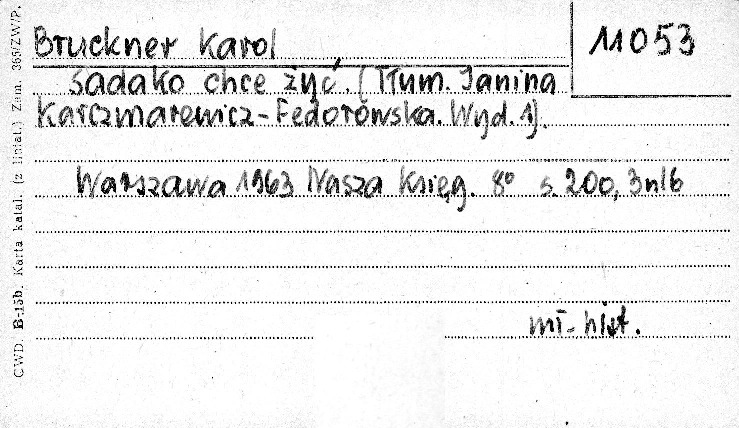 Bruckner Karol
11053
Sadako chce żyć. (Tłum. Janina
Karczmarewicz-Fedorowska. Wyd. 1).
Warszawa 1963 Nasza Księg. 8° s. 200, 3 nlb
mł-hist.
CWD. B-15b. Karta katal. (z liniat.) Zam. 365/ZW/P.